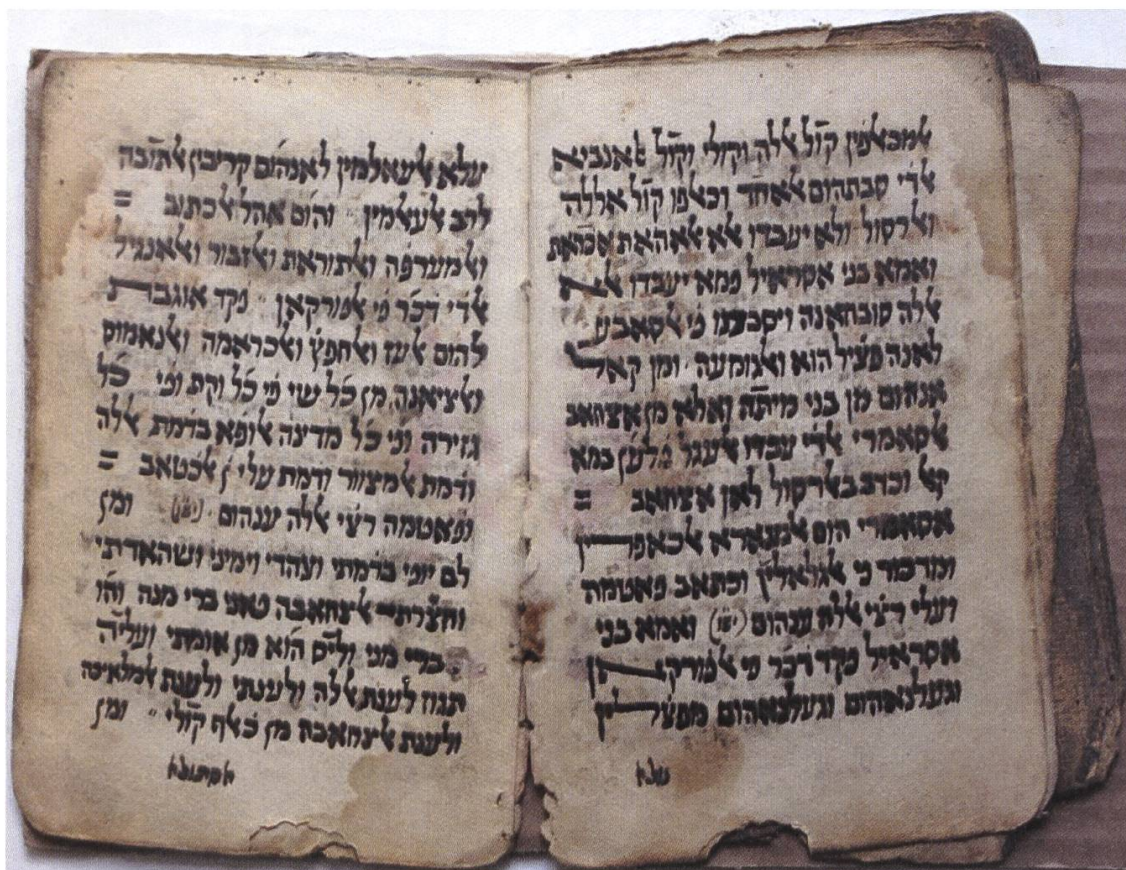 ﭏמכﭏפין קול ﭏלה וקולי וקול ﭏאנביא
ﭏדי סבתהום ﭏאחד וכאלפו קול אללה
וﭏרסול ולא יעבדו
ואמא בני אסראיל פמא יעבדו
ﭏלה סובחאנה פי ﭏסאבע
לאנה פציל הוא וﭏגומעה · ומן קאל
אנהום מן בני מיתה ואלא מן אצחאב
ﭏסאמרי ﭏדי עבדו ﭏעגל פלען במא
קﭏ וכדב בﭏרסול לאן אצחאב =
אסאמרי הום ﭏנצארא ﭏכאפרין
ומדכור פי וכתאב פאטמה
ועלי רצי ﭏלה ענהום ואמא בני
אסראיל פקד דכר פי ﭏפורקאן
וגעלנאהום וגעלנאהום
עלא
עלא ﭏעאלמין לאנהום קריבין ﭏתובה
לרב ﭏעﭏמין ״ והום אהל ﭏכתוב =
וﭏמערפה וﭏתוראת וﭏזבור וﭏאנגיל
ﭏדי דכר פי ﭏפורקאן ״ פקד אוגבת
להום ﭏעז וﭏחפץ וﭏכראמה וﭏנאמוס
וﭏציאנה מן כל שי פי כל וקת ופי כל
גזירה ופי כל מדינה ﭏופא בדמת ﭏלה
ודמת ודמת עלי ן =
ופאטמה רצי ﭏלה ענהום ומן
לם יופי בדמתי ועהדי וימיני ושהאדתי
פאני ברי מנה והו
ברי מני וליס הוא מן אומתי ועליה
לענת ﭏלה ולענתי ולענת ﭏמלאיכה
ולענת מן קולי ״ ומן